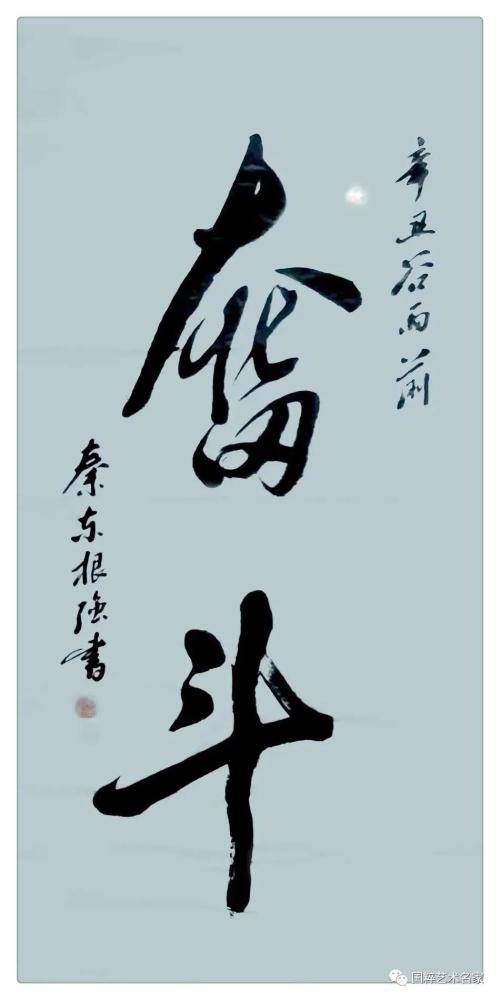 辛丑谷雨前
奋斗
秦东根强书
国粹艺术名家